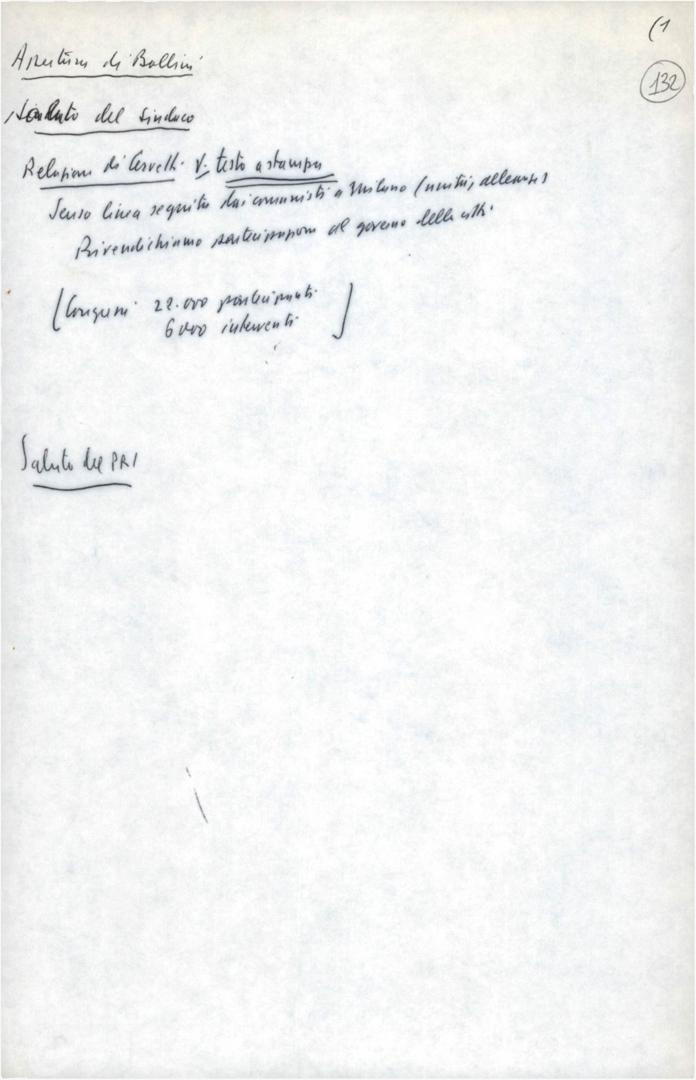 (1
132
Apertura di Bollini
Saluto del Sindaco
Relazione di Cervetti. V. testo a stampa
Senso linea seguita dai comunisti a Milano (unità, alleanze)
Rivendichiamo partecipazione al governo della città.
[Congressi 22.000 partecipanti
6000 interventi]
Saluto del PRI